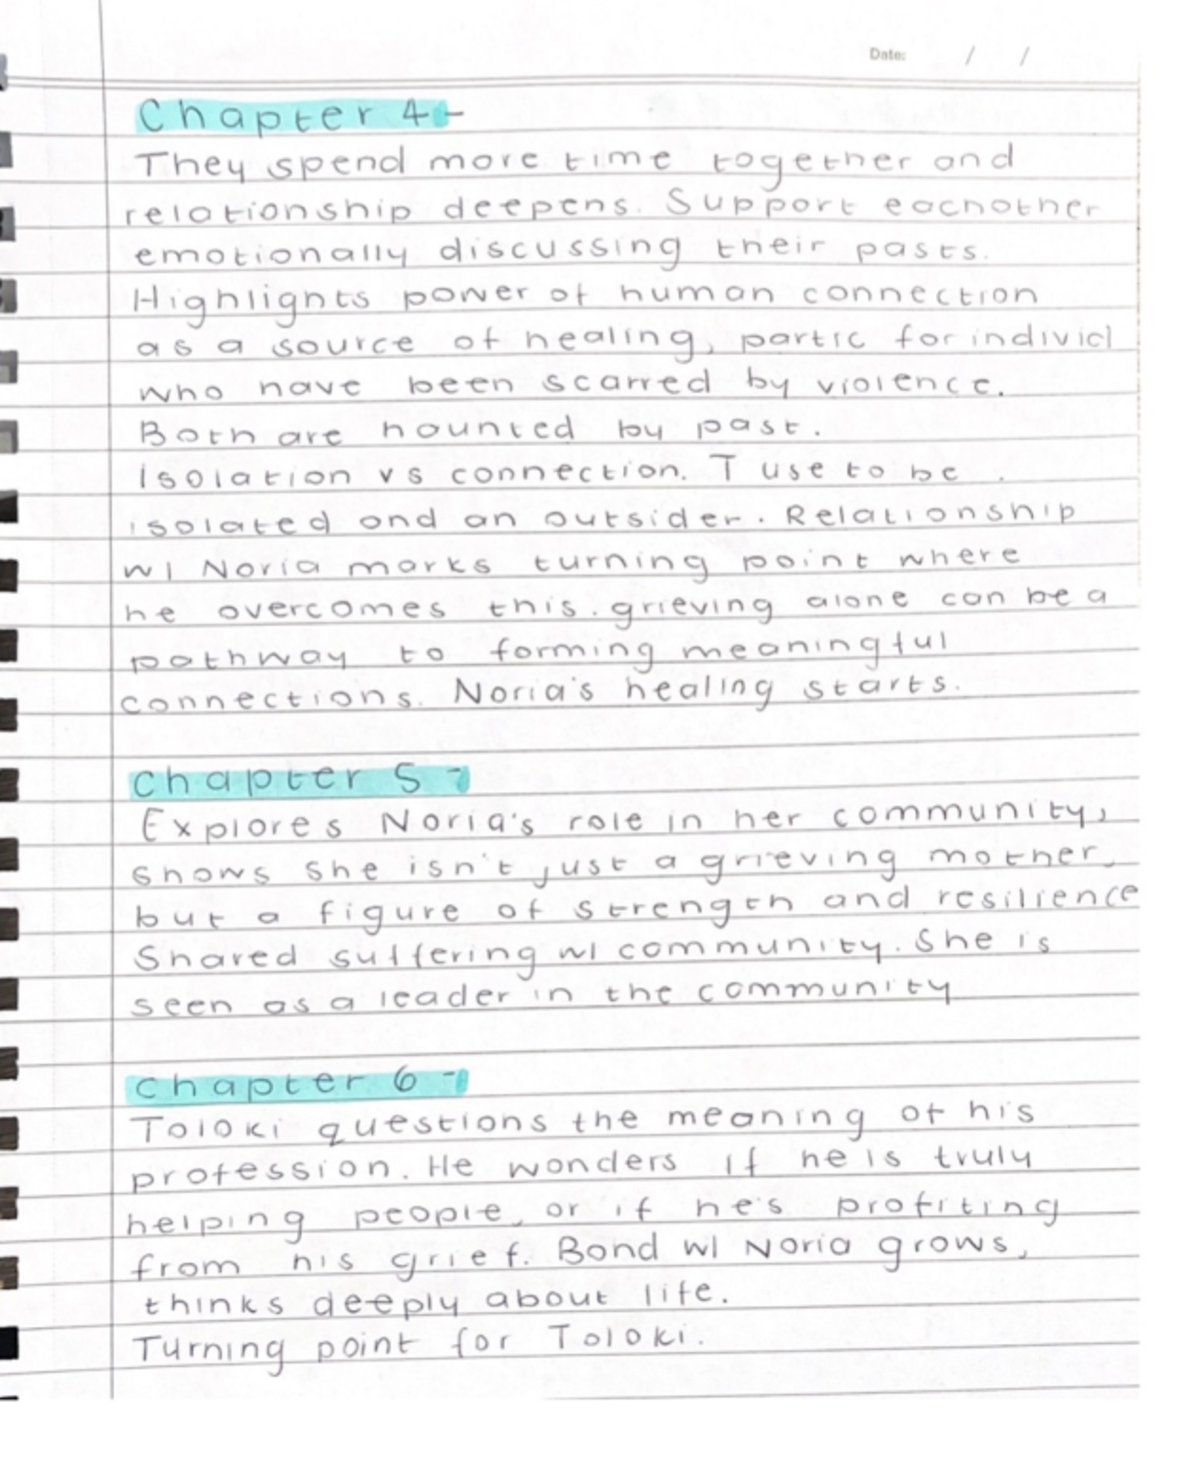 Date: / /
Chapter 4-
They spend more time together and
relationship deepens. Support eachother
emotionally discussing their pasts.
Highlights power of human connection
as a source of healing, partic for individ
who have been scarred by violence.
Both are haunted by past.
Isolation vs connection. T use to be
isolated and an outsider. Relationship
w/ Noria marks turning point where
he overcomes this. grieving alone can be a
pathway to forming meaningful
connections. Noria's healing starts.
Chapter 5-
Explores Noria's role in her community,
shows she isn't just a grieving mother,
but a figure of strength and resilience
Shared suffering w/ community. She is
seen as a leader in the community
Chapter 6-
Toloki questions the meaning of his
profession. He wonders if he is truly
helping people, or if he's profiting
from his grief. Bond w/ Noria grows,
thinks deeply about life.
Turning point for Toloki.